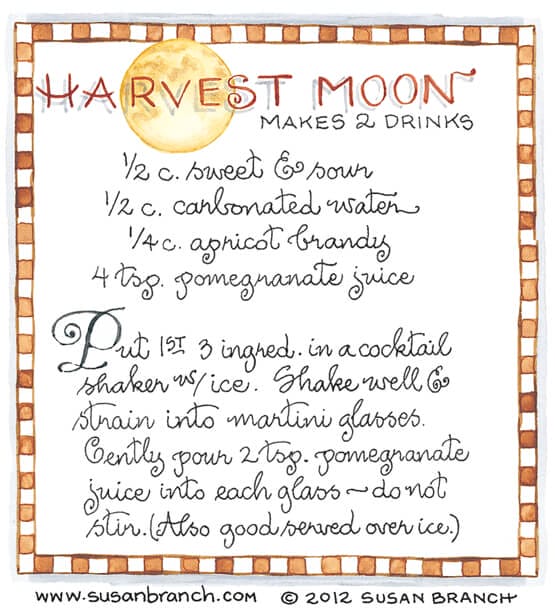 HARVEST MOON
MAKES 2 DRINKS
1/2 c. sweet & sour
1/2 c. carbonated water
1/4 c. apricot brandy
4 tsp. pomegranate juice
Put 1ST 3 ingred. in a cocktail
shaker w/ice. Shake well &
strain into martini glasses.
Gently pour 2 tsp. pomegranate
juice into each glass ~ do not
stir. (Also good served over ice.)
www.susanbranch.com © 2012 SUSAN BRANCH